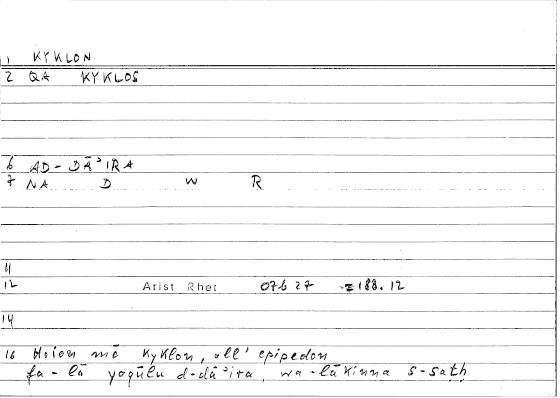 1 KYKLON
2 QA KYKLOS
6 AD-DĀʾIRA
7 NA D W R
11
12 Arist Rhet 07b 27 188.12
14
16 Hoion mē kyklon, all' epipedon
fa-lā yaqūlu d-dāʾira, wa-lākinna s-saṭḥ